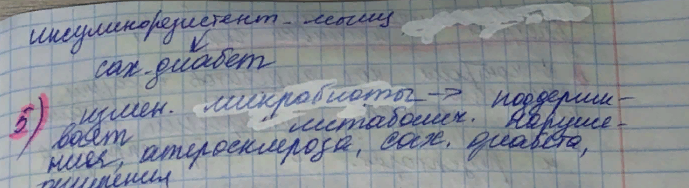 инсулинорезистент. мышц
↓
сах. диабет
5) измен. микробиоты → поддержи-
вает метаболич. наруше-
ния, атеросклероза, сах. диабета,
ожирения